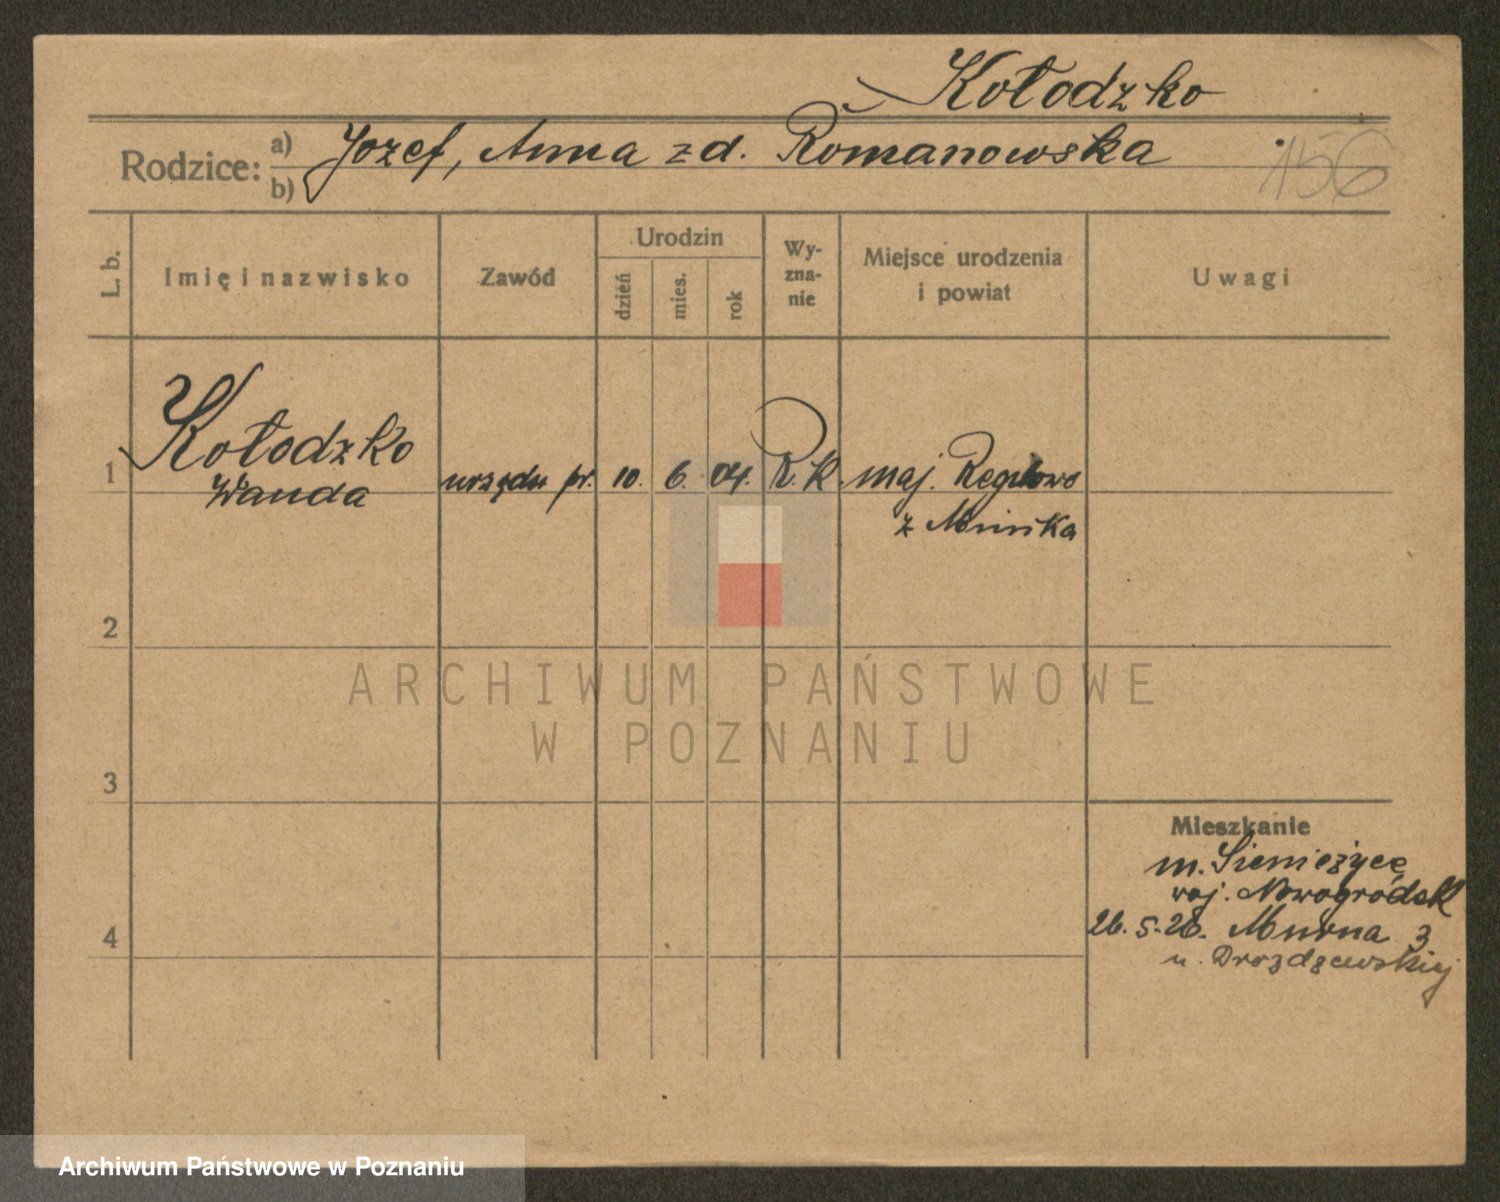 Kołodzko
Rodzice: a) Jozef, Anna z d. Romanowska
b)
156
L. b.
Imię i nazwisko
Zawód
Urodzin
dzień
mies.
rok
Wy-
zna-
nie
Miejsce urodzenia
i powiat
Uwagi
1
Kołodzko
Wanda
urzędn pr.
10.
6.
04.
R. K.
maj.
z Mińska
2
ARCHIWUM PAŃSTWOWE
W POZNANIU
3
Mieszkanie
m. Sienieżyce
woj. Nowogródek
26. 5. 26. Murna 3
u. Drozdzewskiej
4
Archiwum Państwowe w Poznaniu